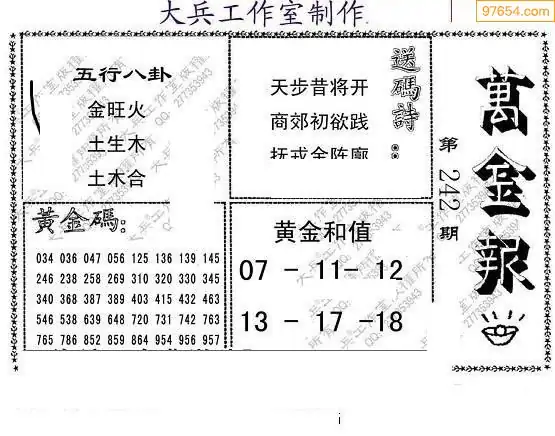 大兵工作室制作
97654.com
五行八卦
金旺火
土生木
土木合
送碼詩：
天步昔将开
商郊初欲践
抚戎金阵廓
萬金報
第242期
黃金碼：
034 036 047 056 125 136 139 145
246 238 258 269 310 320 330 345
340 368 387 389 403 415 432 463
546 538 639 648 720 731 742 763
765 786 852 859 864 954 956 957
黄金和值
07 - 11- 12
13 - 17 -18